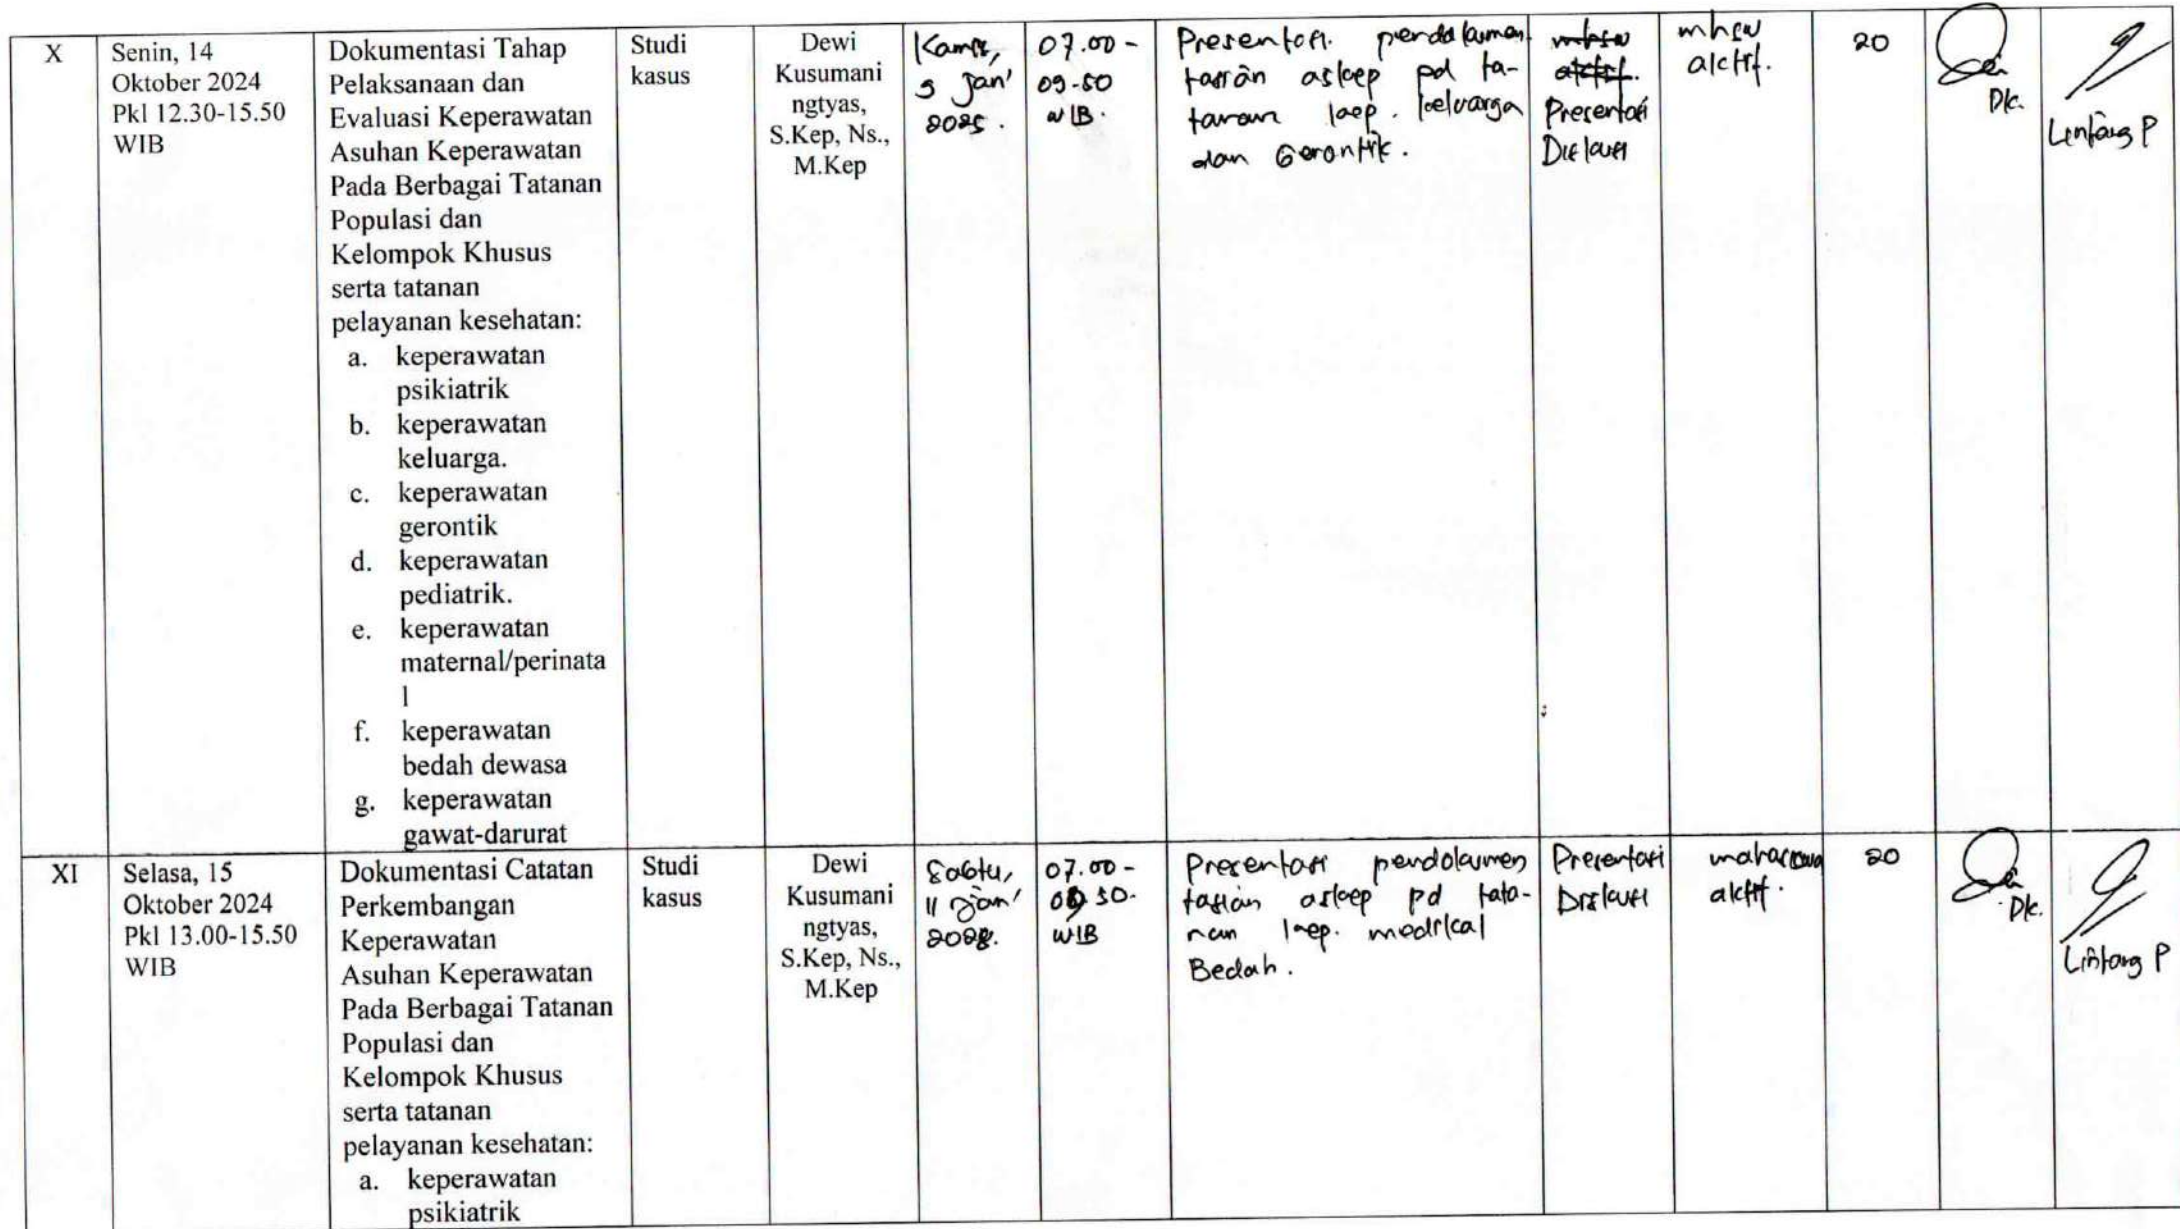 X
Senin, 14
Oktober 2024
Pkl 12.30-15.50
WIB
Dokumentasi Tahap
Pelaksanaan dan
Evaluasi Keperawatan
Asuhan Keperawatan
Pada Berbagai Tatanan
Populasi dan
Kelompok Khusus
serta tatanan
pelayanan kesehatan:
a. keperawatan
psikiatrik
b. keperawatan
keluarga.
c. keperawatan
gerontik
d. keperawatan
pediatrik.
e. keperawatan
maternal/perinata
l
f. keperawatan
bedah dewasa
g. keperawatan
gawat-darurat
Studi
kasus
Dewi
Kusumani
ngtyas,
S.Kep, Ns.,
M.Kep
Kamis,
9 Jan'
2025.
07.00 -
09.50
WIB.
Presentasi pendokumen
tasian askep pd ta-
tanan kep. keluarga
dan Gerontik.
mhsw
aktif.
Presentasi
Diskusi
mhsw
aktif.
20
Dk.
Lintang P
XI
Selasa, 15
Oktober 2024
Pkl 13.00-15.50
WIB
Dokumentasi Catatan
Perkembangan
Keperawatan
Asuhan Keperawatan
Pada Berbagai Tatanan
Populasi dan
Kelompok Khusus
serta tatanan
pelayanan kesehatan:
a. keperawatan
psikiatrik
Studi
kasus
Dewi
Kusumani
ngtyas,
S.Kep, Ns.,
M.Kep
Sabtu,
11 Jan'
07.00 -
WIB
Presentasi pendokumen
tasian askep pd tata-
nan kep. medikal
Bedah.
Presentasi
Diskusi
mahasiswa
aktif.
20
Dk.
Lintang P